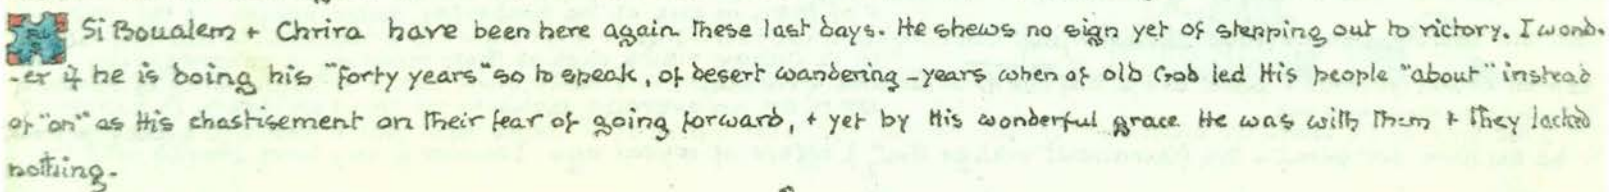 Si Boualem + Chrira have been here again these last days. He shews no sign yet of stepping out to victory. I wond-
-er if he is doing his "forty years" so to speak, of desert wandering - years when of old God led His people "about" instead
of "on" as His chastisement on their fear of going forward, + yet by His wonderful grace He was with them + they lacked
nothing.